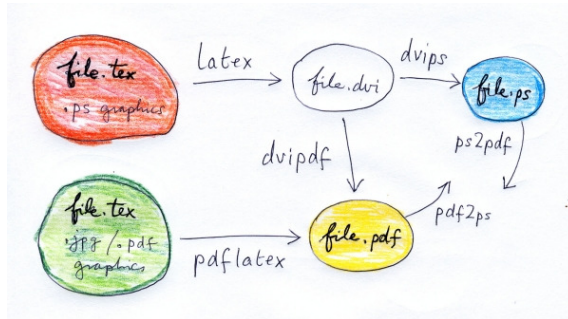 file.tex
.ps graphics
latex
file.dvi
dvips
file.ps
dvipdf
ps2pdf
file.tex
.jpg / .pdf
graphics
pdflatex
file.pdf
pdf2ps